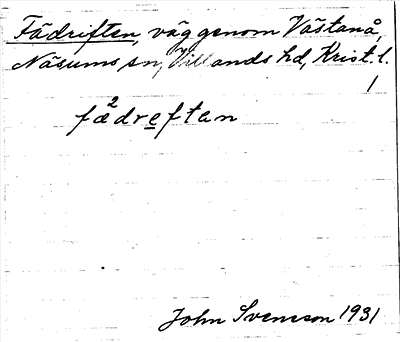 Fädriften, väg genom Västanå,
Näsums sn, Villands hd, Krist. l.
1
fæ²dreften
John Svensson 1931